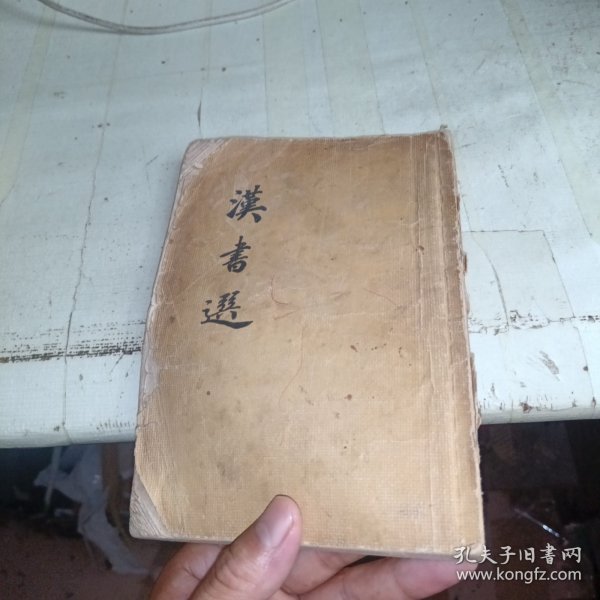 漢書選
孔夫子旧書网
www.kongfz.com